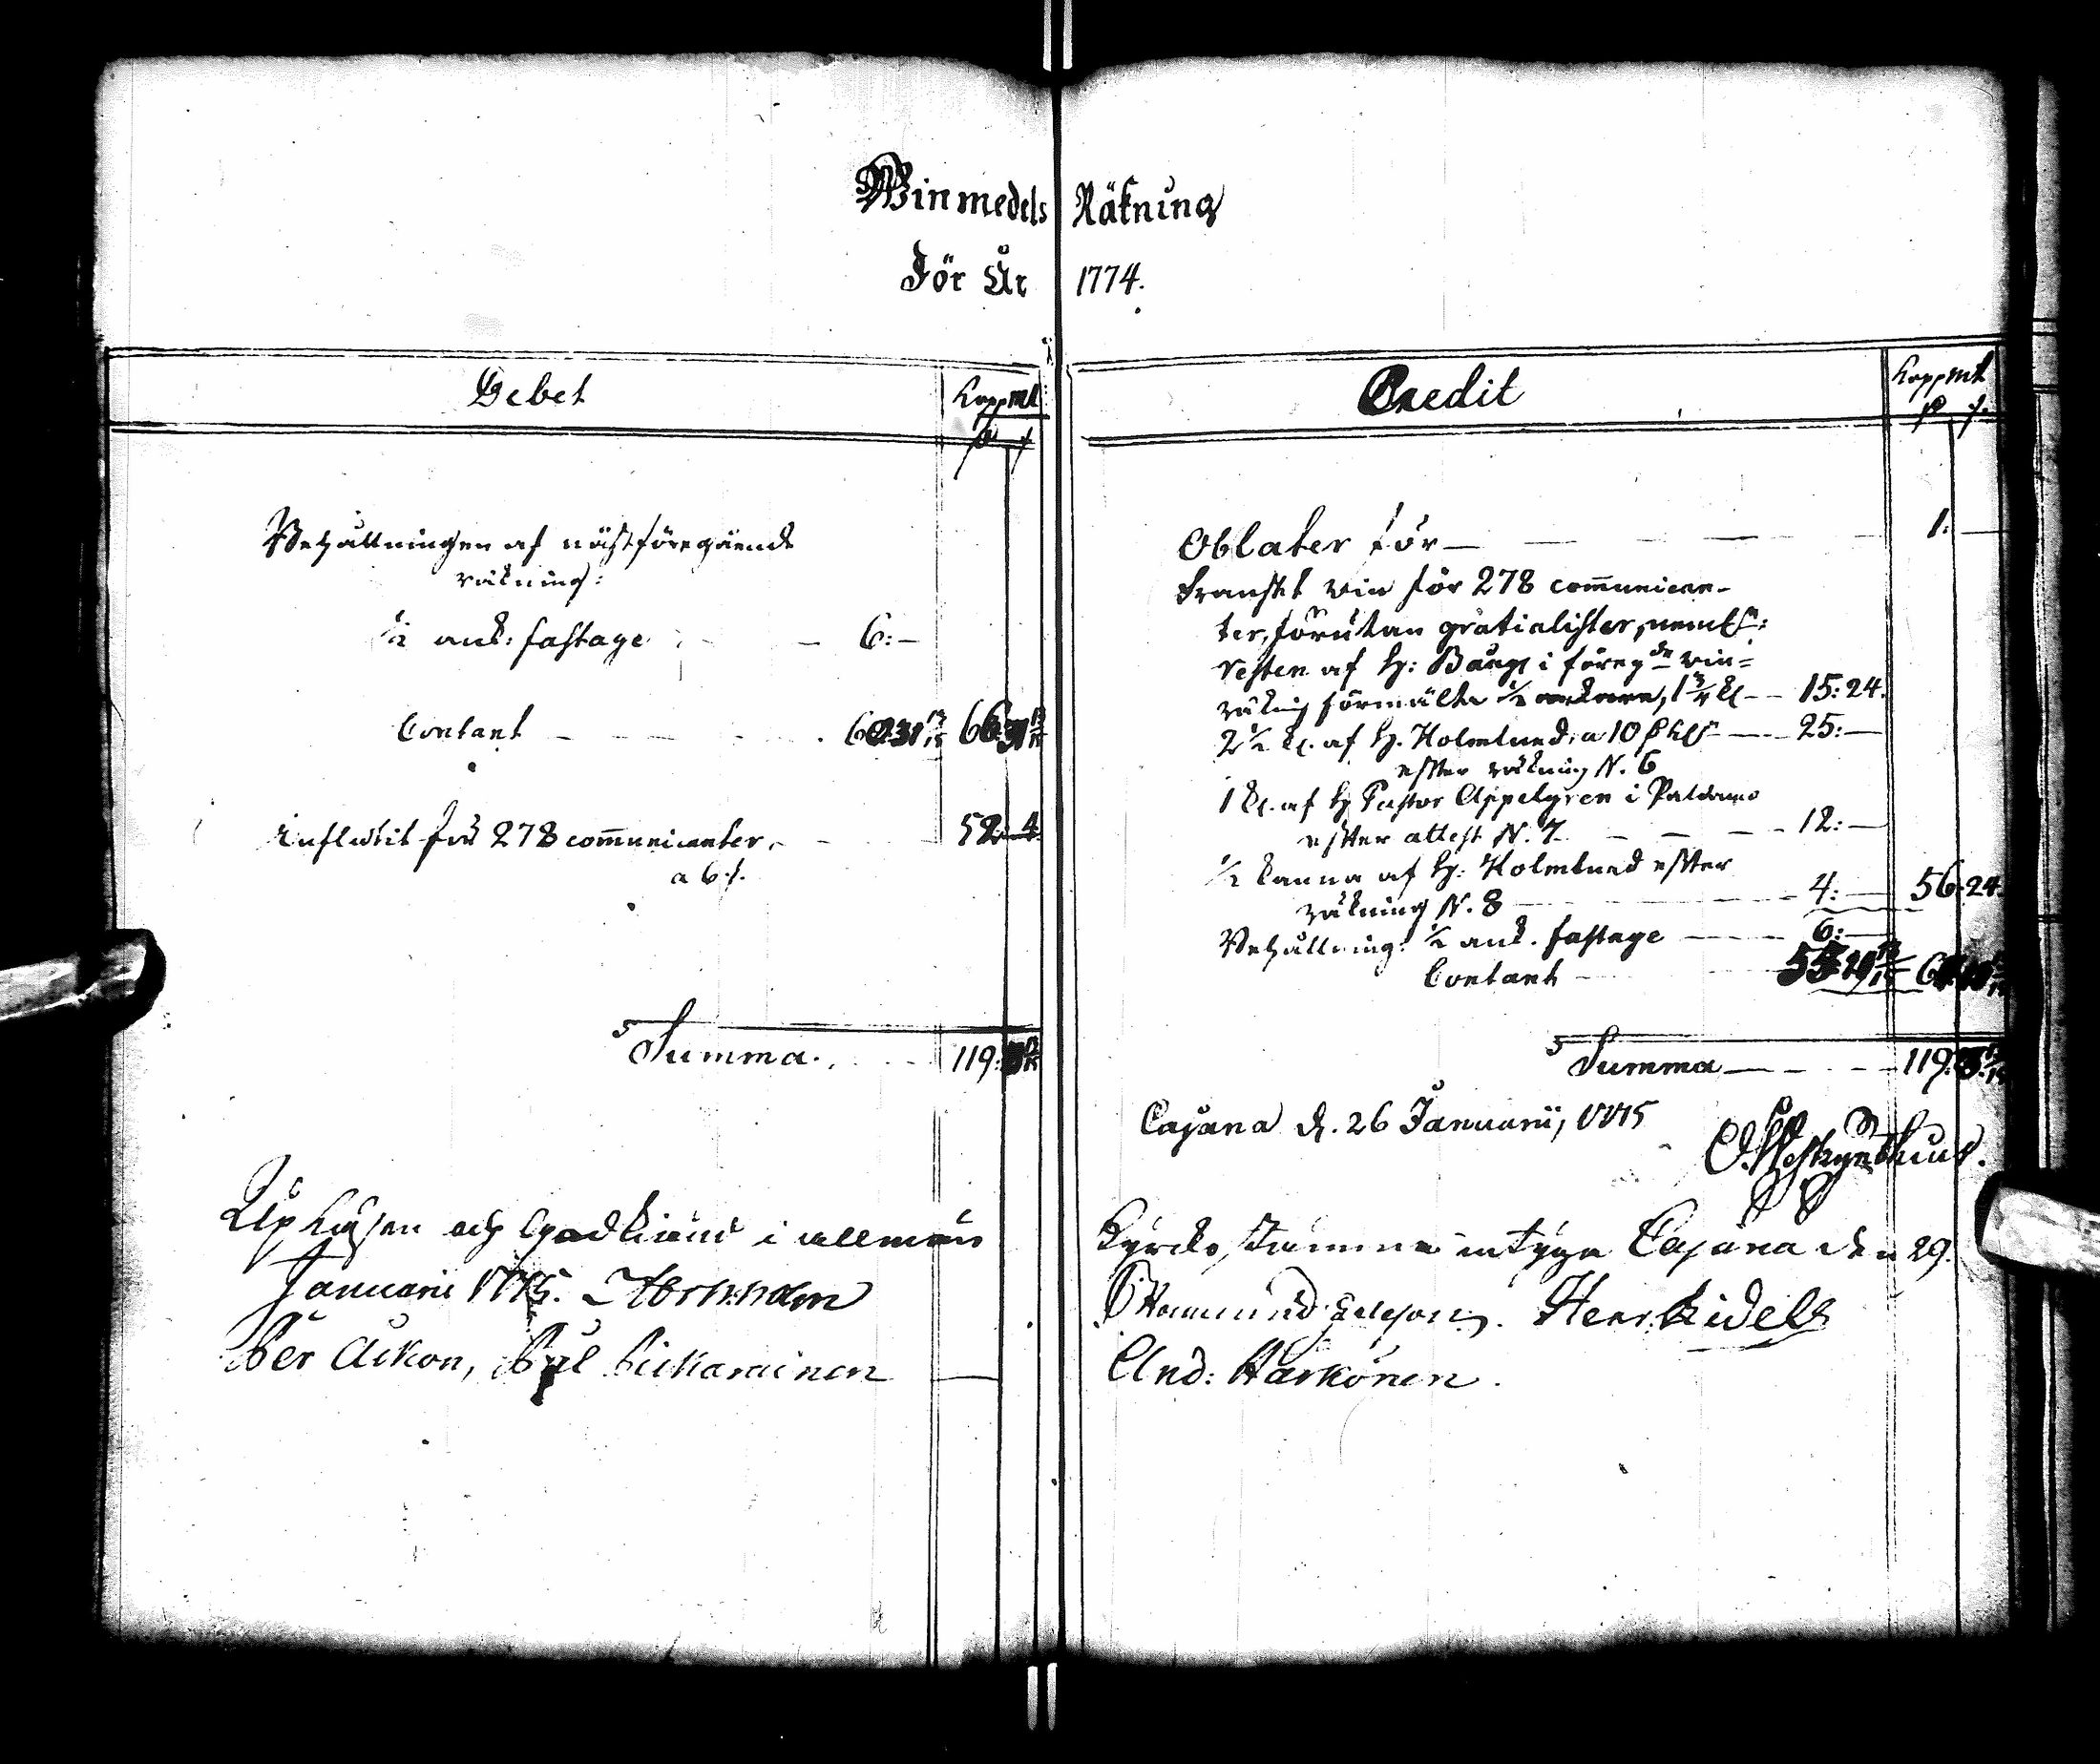 Winmedels Räkning
För År 1774.
Debet
Koppmt
Behållningen af nästföregående
räkning:
½ ank: fastage 6:—
Contant
Influtit för 278 communicanter
52: 4
a 6 :/.
Summa. 119:
Credit
Koppmt
Oblater för — 1: —
Franskt vin för 278 communican-
ter, förutan gratialister, neml:
Resten af H: Bange i föreg de vin=
räkning förmälte ½ ankare, 1¾ k — 15: 24.
2½ k. af H. Holmlund, a 10 — 25: —
efter räkning N. 6
1 k. af H Pastor Appelgren i Paldamo
efter attest N. 7 — 12: —
½ kanna af H: Holmlund efter
räkning N. 8 — 4: — 56: 24.
Behållning: ½ ank. fastage — 6: —
Contant
Summa — 119:
Cajana d. 26 Januarii, 1775
Upläsen och Godkänd i allmän
Kyrcko Stämma intyga Cajana den 29.
Januarii 1775.
Henr
Per Aikon,
And: Härkönen.